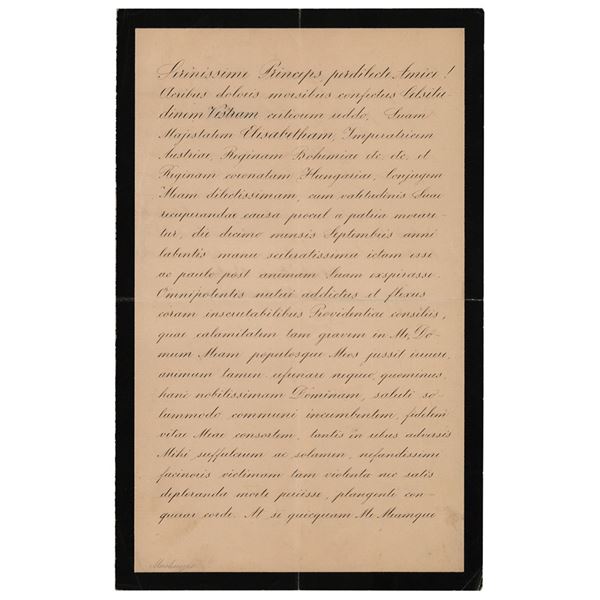 Serenissime Princeps, perdilecte Amice!
Acribus doloris morsibus confectus Celsitu-
dinem Vestram certiorem reddo, Suam
Majestatem Elisabetham, Imperatricem
Austriae, Reginam Bohemiae etc. etc. et
Reginam coronatam Hungariae, Conjugem
Meam dilectissimam, cum valetudinis Suae
recuperandae causa procul a patria morare-
tur, die decimo mensis Septembris anni
labentis manu sceleratissima ictam esse
ac paulo post animam Suam exspirasse.
Omnipotentis nutui addictus et flexus
coram inscrutabilibus Providentiae consiliis,
quae calamitatem tam gravem in Me, Do-
mum Meam populosque Meos jussit inruere,
animum tamen refrenare nequeo, quominus,
hanc nobilissimam Dominam, saluti so-
lummodo communi incumbentem, fidelem
vitae Meae consortem, tantis in rebus adversis
Mihi suffulcrum ac solamen, nefandissimi
facinoris victimam tam violenta nec satis
deploranda morte periisse, plangente con-
querar corde. At si quicquam Me Meamque